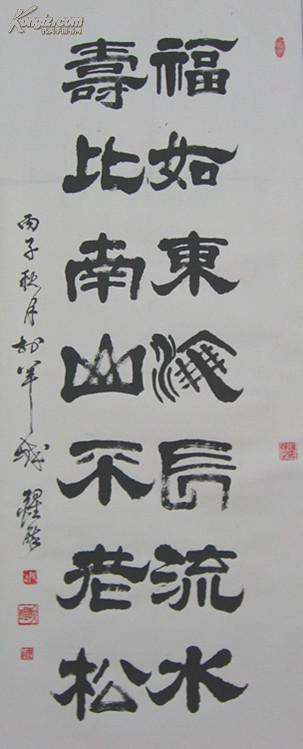 福如東海長流水
壽比南山不老松
丙子秋月於羊城
Kongfz.com
孔夫子旧书网